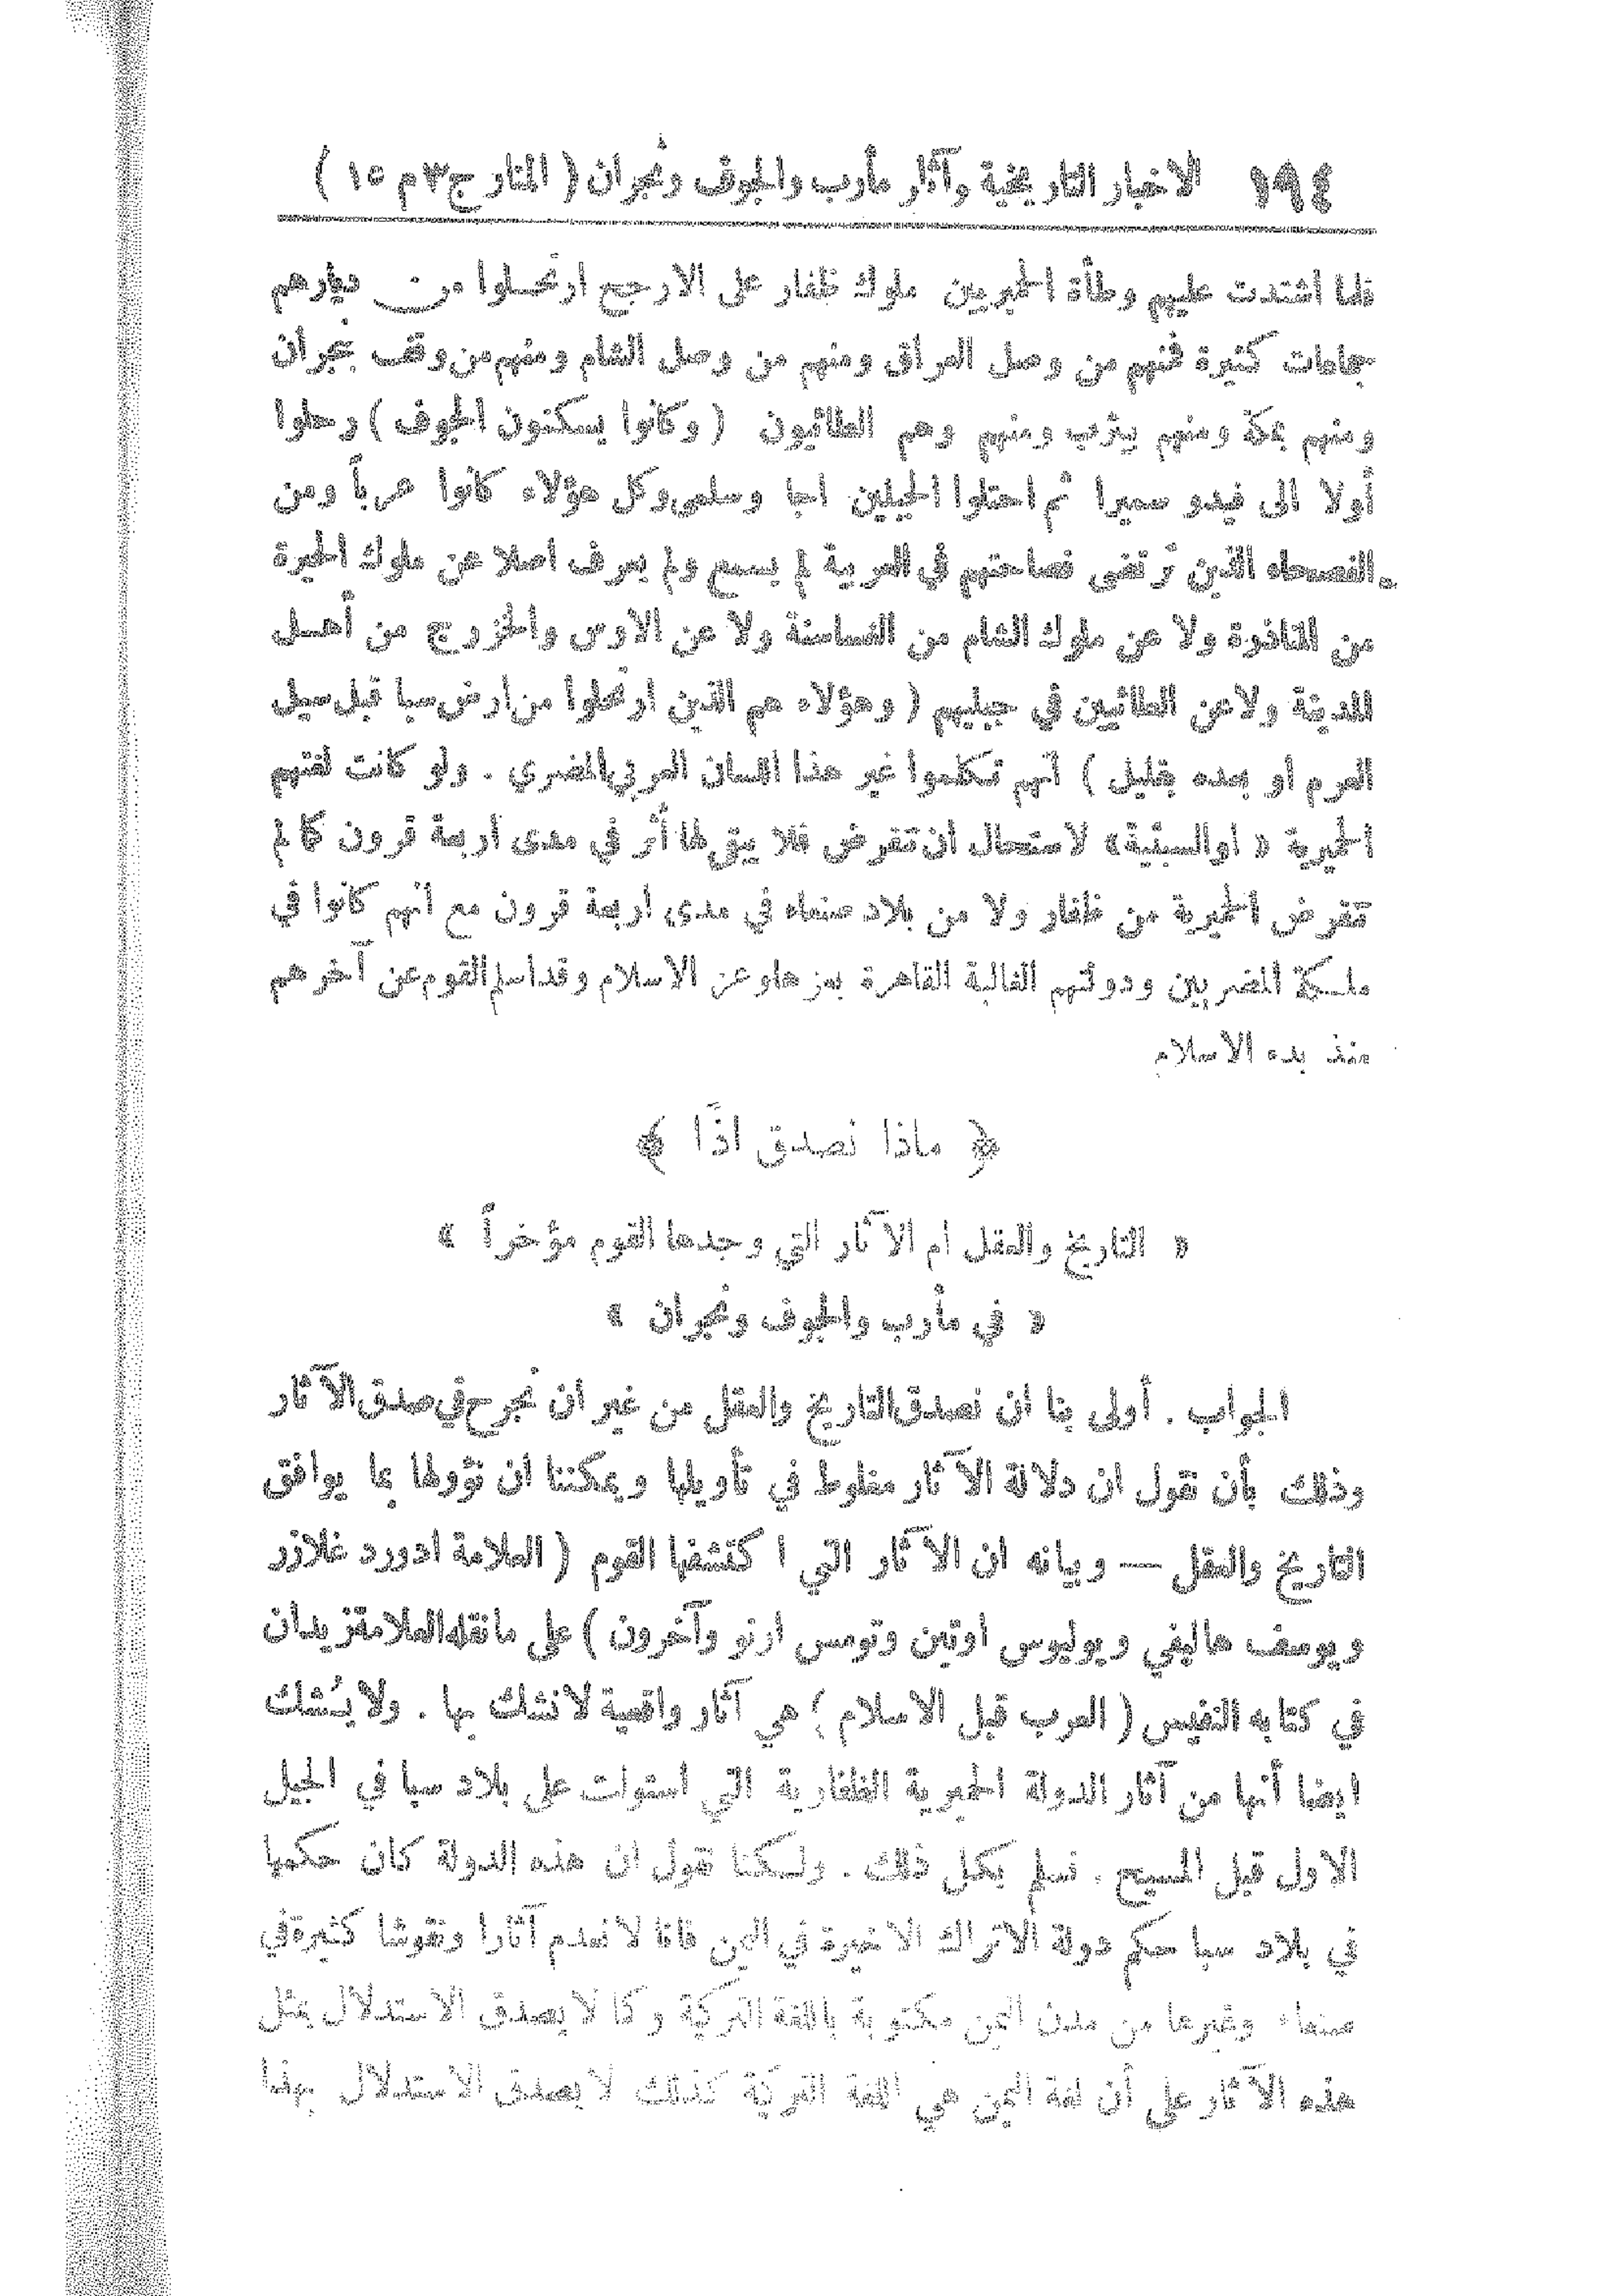 ١٩٤ الاخبار التاريخية وآثار مأرب والجوف ونجران ( المنار ج٣ م ١٥ )
فلما اشتدت عليهم وطأة الحميريين ملوك ظفار على الارجح ارتحلوا من ديارهم
جماعات كثيرة فمنهم من وصل العراق ومنهم من وصل الشام ومنهم من وقف بنجران
ومنهم بمكة ومنهم يثرب ومنهم وهم الطائيون ( وكانوا يسكنون الجوف ) رحلوا
أولا الى فيدو سميرا ثم احتلوا الجبلين اجا وسلمى وكل هؤلاء كانوا عرباً ومن
الفصحاء الذين تُرتضى فصاحتهم في العربية لم يسمع ولم يعرف اصلا عن ملوك الحيرة
من المناذرة ولا عن ملوك الشام من الغساسنة ولا عن الاوس والخزرج من أهل
المدينة ولا عن الطائيين في جبليهم ( وهؤلاء هم الذين ارتحلوا من ارض سبا قبل سيل
العرم او بعده بقليل ) انهم تكلموا غير هذا اللسان العربي المضري . ولو كانت لغتهم
الحميرية « او السبئية » لاستحال ان تنقرض فلا يبقى لها أثر في مدى اربعة قرون كما لم
تنقرض الحميرية من ظفار ولا من بلاد صنعاء في مدى اربعة قرون مع انهم كانوا في
ملكة المضريين ودولتهم الغالبة القاهرة بعزها وعز الاسلام وقد اسلم القوم عن آخرهم
منذ بدء الاسلام
﴿ ماذا نصدق اذًا ﴾
« التاريخ والعقل ام الآثار التي وجدها القوم مؤخراً »
« في مأرب والجوف ونجران »
الجواب . أولى بنا ان نصدق التاريخ والعقل من غير ان نجرح في صدق الآثار
وذلك بأن نقول ان دلالة الآثار مغلوط في تأويلها ويمكننا ان نؤولها بما يوافق
التاريخ والعقل — وبيانه ان الآثار التي اكتشفها القوم ( العلامة ادورد غلازر
ويوسف هاليفي ويوليوس اوتين وتومس ارنو وآخرون ) على ما نقله العلامة زيدان
في كتابه النفيس ( العرب قبل الاسلام ) هي آثار واقعية لا نشك بها . ولا يُشك
ايضا أنها من آثار الدولة الحميرية الظفارية التي استولت على بلاد سبا في الجيل
الاول قبل المسيح . نسلم بكل ذلك . ولكنا نقول ان هذه الدولة كان حكمها
في بلاد سبا حكم دولة الاتراك الاخيرة في اليمن فاننا لا نعدم آثارا ونقوشا كثيرة في
صنعاء وغيرها من مدن اليمن مكتوبة باللغة التركية وكما لا يصدق الاستدلال بمثل
هذه الآثار على أن لغة اليمن هي اللغة التركية كذلك لا يصدق الاستدلال بهذا